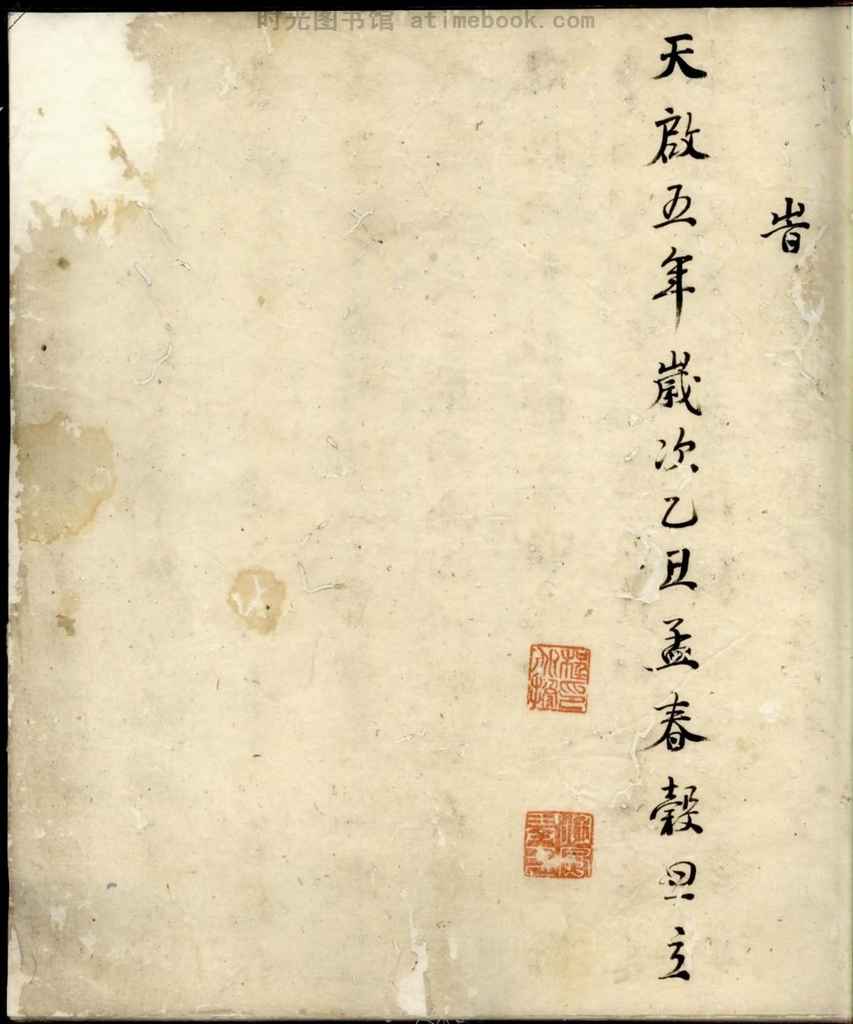 时光图书馆 atimebook.com
旹
天啟五年歲次乙丑孟春穀旦立